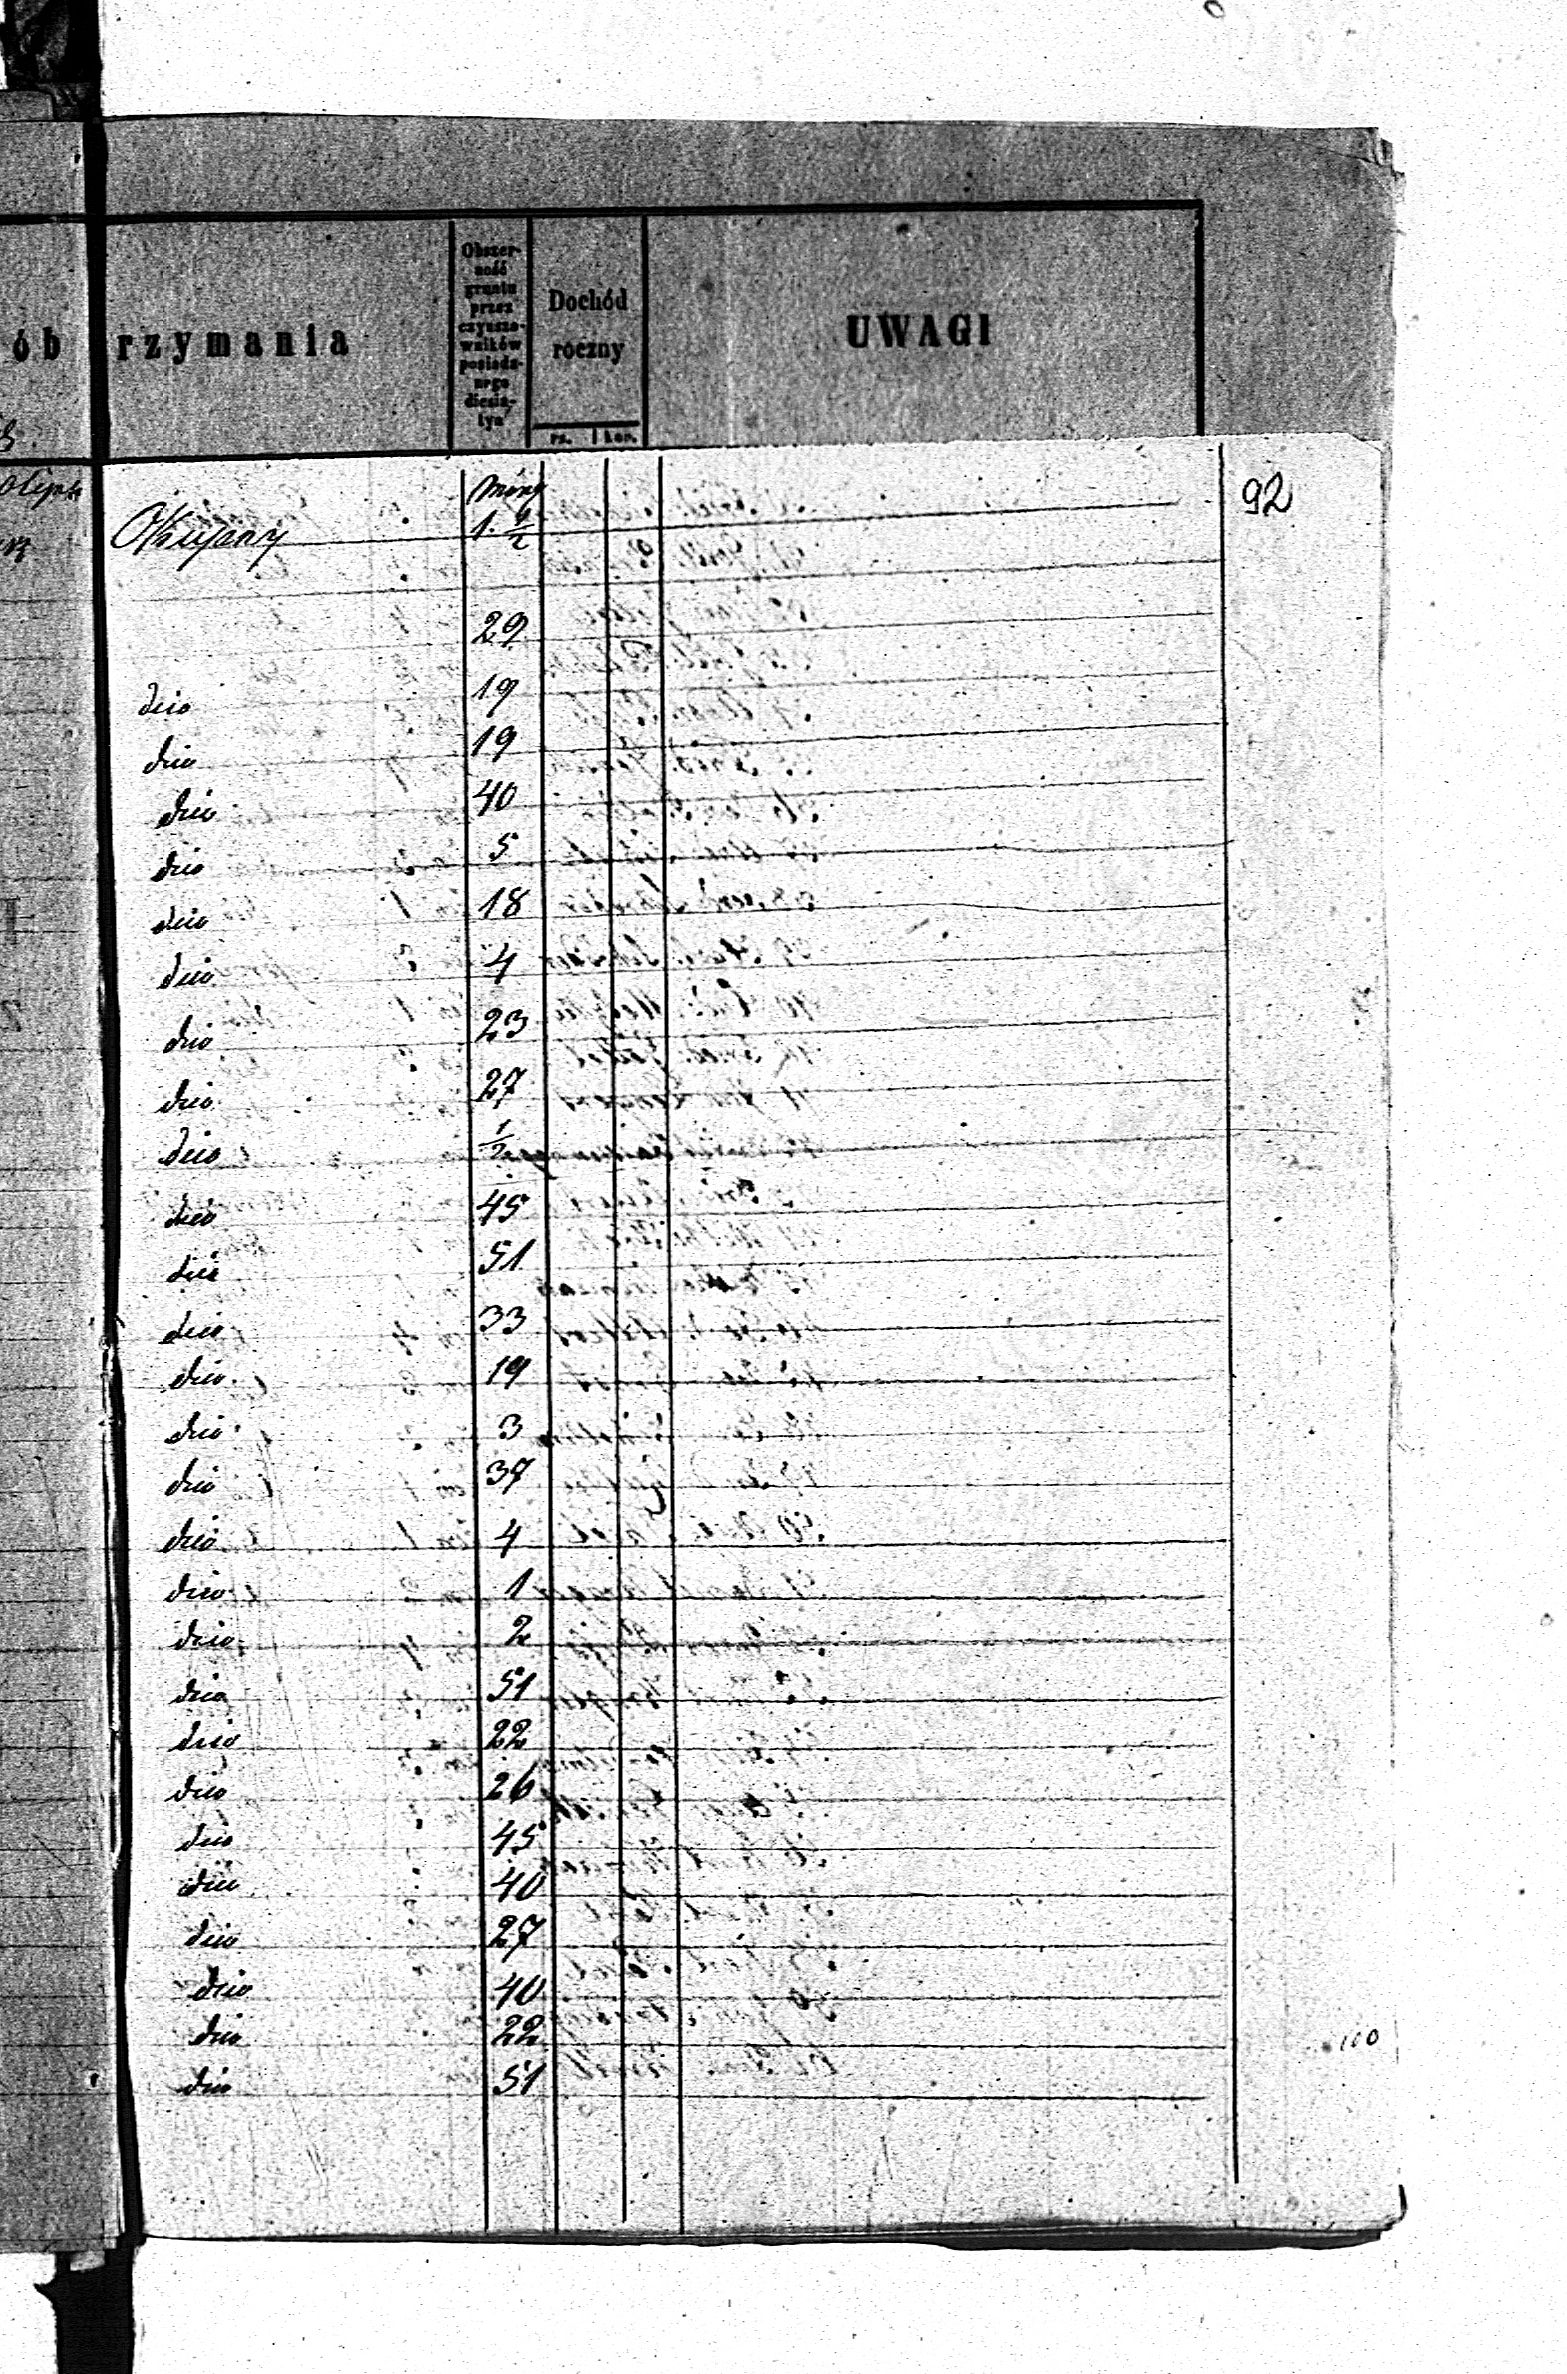 ób rzymania
Obszer-
ność
gruntu
przez
czynszo-
wników
posiada-
nego
diesia-
tyn
Dochód
roczny
rs. kop.
UWAGI
92
morg
1. 1/2
29
dito 19
dito 19
dito 40
dito 5
dito 18
dito 4
dito 23
dito 27
dito 1/2
dito 45
dito 51
dito 33
dito 19
dito 3
dito 37
dito 4
dito 1
dito 2
dito 51
dito 22
dito 26
dito 45
dito 40
dito 27
dito 40
dito 22
dito 51